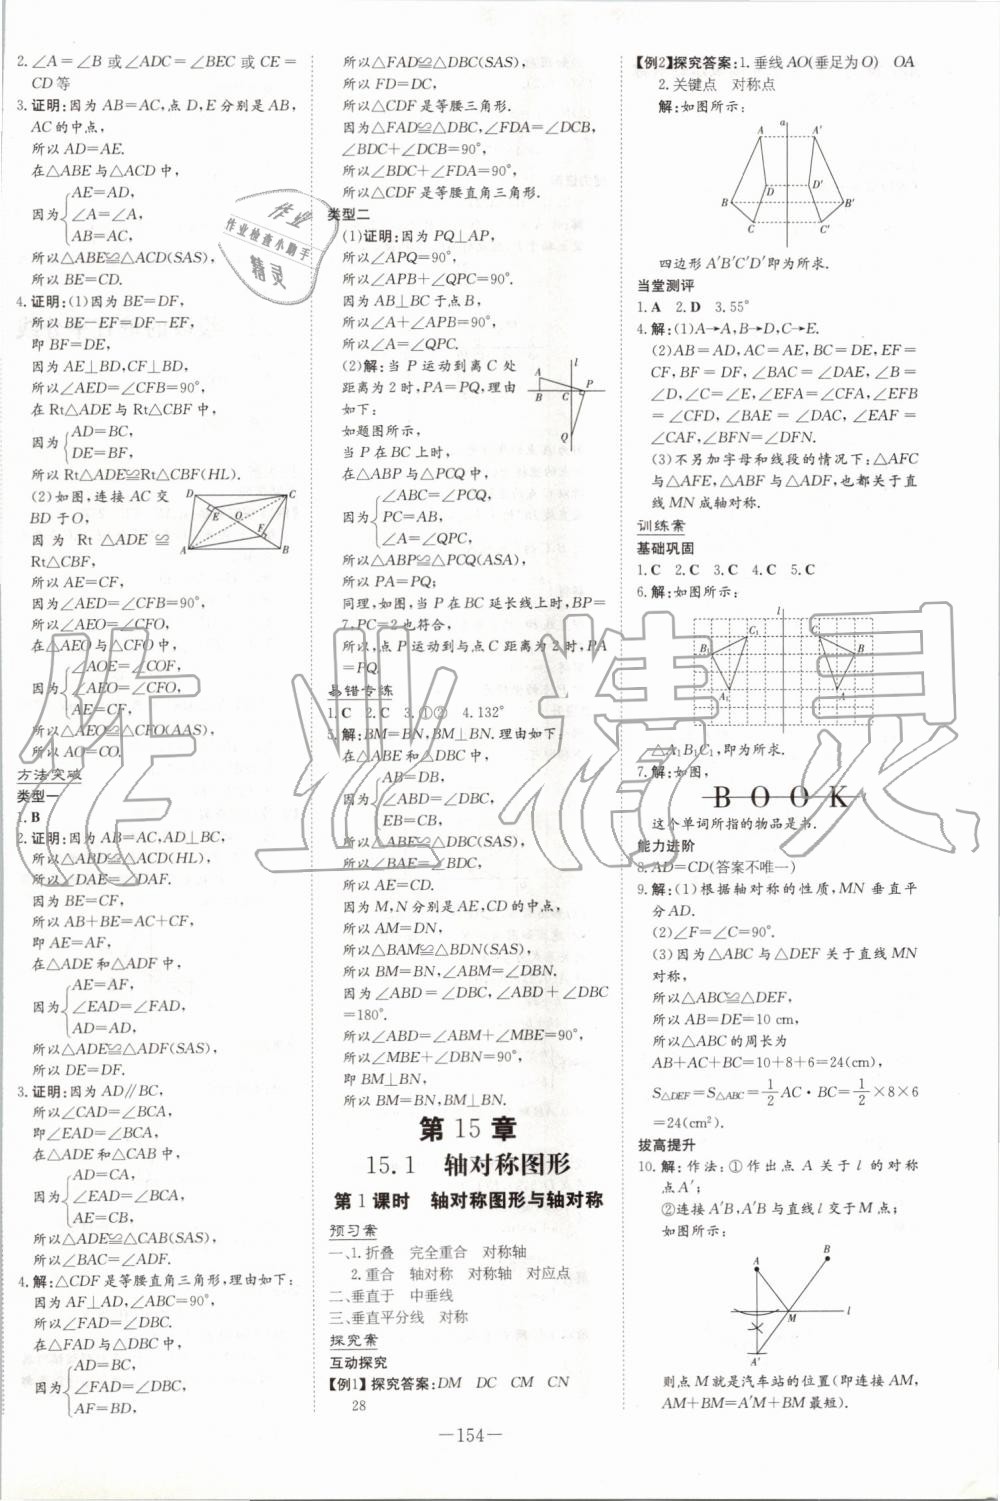 2.∠A=∠B 或∠ADC=∠BEC 或 CE=
CD等
3.证明:因为 AB=AC,点 D,E 分别是 AB,
AC 的中点,
所以 AD=AE.
在△ABE 与△ACD 中,
AE=AD,
因为 ∠A=∠A,
AB=AC,
所以△ABE≌△ACD(SAS),
所以 BE=CD.
4.证明:(1)因为 BE=DF,
所以 BE-EF=DF-EF,
即 BF=DE,
因为 AE⊥BD,CF⊥BD,
所以∠AED=∠CFB=90°,
在 Rt△ADE 与 Rt△CBF 中,
因为 AD=BC,
DE=BF,
所以 Rt△ADE≌Rt△CBF(HL).
(2)如图,连接 AC 交
BD 于 O,
因为 Rt △ADE ≌
Rt△CBF,
所以 AE=CF,
因为∠AED=∠CFB=90°,
所以∠AEO=∠CFO,
在△AEO 与△CFO 中,
∠AOE=∠COF,
因为 ∠AEO=∠CFO,
AE=CF,
所以△AEO≌△CFO(AAS),
所以 AO=CO.
D C E O F A B
方法突破
类型一
1.B
2.证明:因为 AB=AC,AD⊥BC,
所以△ABD≌△ACD(HL),
所以∠DAE=∠DAF.
因为 BE=CF,
所以 AB+BE=AC+CF,
即 AE=AF,
在△ADE 和△ADF 中,
AE=AF,
因为 ∠EAD=∠FAD,
AD=AD,
所以△ADE≌△ADF(SAS),
所以 DE=DF.
3.证明:因为 AD∥BC,
所以∠CAD=∠BCA,
即∠EAD=∠BCA,
在△ADE 和△CAB 中,
AD=CA,
因为 ∠EAD=∠BCA,
AE=CB,
所以△ADE≌△CAB(SAS),
所以∠BAC=∠ADF.
4.解:△CDF 是等腰直角三角形,理由如下:
因为 AF⊥AD,∠ABC=90°,
所以∠FAD=∠DBC.
在△FAD 与△DBC 中,
AD=BC,
因为 ∠FAD=∠DBC,
AF=BD,
所以△FAD≌△DBC(SAS),
所以 FD=DC,
所以△CDF 是等腰三角形.
因为△FAD≌△DBC,∠FDA=∠DCB,
∠BDC+∠DCB=90°,
所以∠BDC+∠FDA=90°,
所以△CDF 是等腰直角三角形.
类型二
(1)证明:因为 PQ⊥AP,
所以∠APQ=90°,
所以∠APB+∠QPC=90°,
因为 AB⊥BC 于点 B,
所以∠A+∠APB=90°,
所以∠A=∠QPC.
(2)解:当 P 运动到离 C 处
距离为 2 时,PA=PQ,理由
如下:
如题图所示,
当 P 在 BC 上时,
在△ABP 与△PCQ 中,
∠ABC=∠PCQ,
因为 PC=AB,
∠A=∠QPC,
所以△ABP≌△PCQ(ASA),
所以 PA=PQ;
同理,如图,当 P 在 BC 延长线上时,BP=
7,PC=2 也符合,
所以,点 P 运动到与点 C 距离为 2 时,PA
=PQ.
l A B C P Q
易错专练
1.C 2.C 3.①② 4.132°
5.解:BM=BN,BM⊥BN.理由如下:
在△ABE 和△DBC 中,
AB=DB,
因为 ∠ABD=∠DBC,
EB=CB,
所以△ABE≌△DBC(SAS),
所以∠BAE=∠BDC,
所以 AE=CD.
因为 M,N 分别是 AE,CD 的中点,
所以 AM=DN,
所以△BAM≌△BDN(SAS),
所以 BM=BN,∠ABM=∠DBN.
因为∠ABD=∠DBC,∠ABD+∠DBC
=180°.
所以∠ABD=∠ABM+∠MBE=90°,
所以∠MBE+∠DBN=90°,
即 BM⊥BN,
所以 BM=BN,BM⊥BN.
第 15 章
15.1 轴对称图形
第 1 课时 轴对称图形与轴对称
预习案
一、1.折叠 完全重合 对称轴
2.重合 轴对称 对称轴 对应点
二、垂直于 中垂线
三、垂直平分线 对称
探究案
互动探究
【例1】探究答案:DM DC CM CN
28
【例2】探究答案:1.垂线 AO(垂足为 O) OA
2.关键点 对称点
解:如图所示:
a A A' D D' B B' C C'
四边形 A'B'C'D'即为所求.
当堂测评
1.A 2.D 3.55°
4.解:(1)A→A,B→D,C→E.
(2)AB=AD,AC=AE,BC=DE,EF=
CF,BF=DF,∠BAC=∠DAE,∠B=
∠D,∠C=∠E,∠EFA=∠CFA,∠EFB
=∠CFD,∠BAE=∠DAC,∠EAF=
∠CAF,∠BFN=∠DFN.
(3)不另加字母和线段的情况下:△AFC
与△AFE,△ABF 与△ADF,也都关于直
线 MN 成轴对称.
训练案
基础巩固
1.C 2.C 3.C 4.C 5.C
6.解:如图所示:
l C₁ C B₁ B A₁ A
△A₁B₁C₁,即为所求.
7.解:如图,
BOOK
这个单词所指的物品是书.
能力进阶
8.AD=CD(答案不唯一)
9.解:(1)根据轴对称的性质,MN 垂直平
分 AD.
(2)∠F=∠C=90°.
(3)因为△ABC 与△DEF 关于直线 MN
对称,
所以△ABC≌△DEF,
所以 AB=DE=10 cm,
所以△ABC 的周长为
AB+AC+BC=10+8+6=24(cm),
S△DEF=S△ABC=1/2 AC·BC=1/2×8×6
=24(cm²).
拔高提升
10.解:作法:①作出点 A 关于 l 的对称
点 A';
②连接 A'B,A'B 与直线 l 交于 M 点;
如图所示:
A B M l A'
则点 M 就是汽车站的位置(即连接 AM,
AM+BM=A'M+BM 最短).
—154—
作业
作业检查小助手
精灵
作业精灵